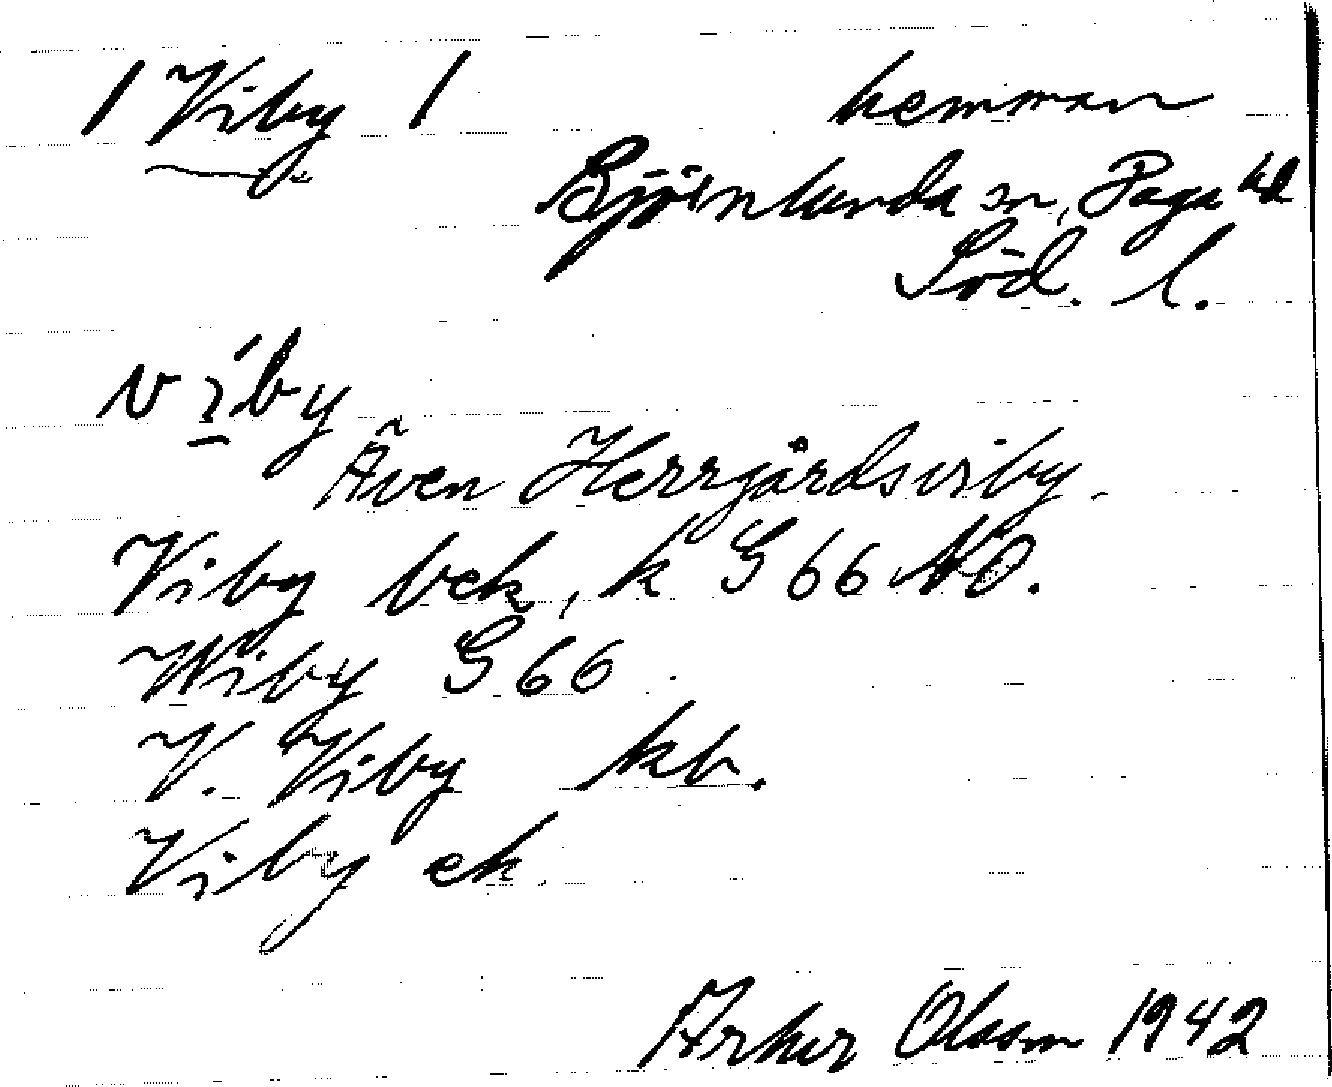 1 Viby 1 hemman
Björnlunda sn, Daga hd
Söd. l.
ví̲by
Även Herrgårdsviby
Viby bek, k G 66 NO.
Wiby G 66
V. Viby kb.
Viby ek
Arthur Olsson 1942